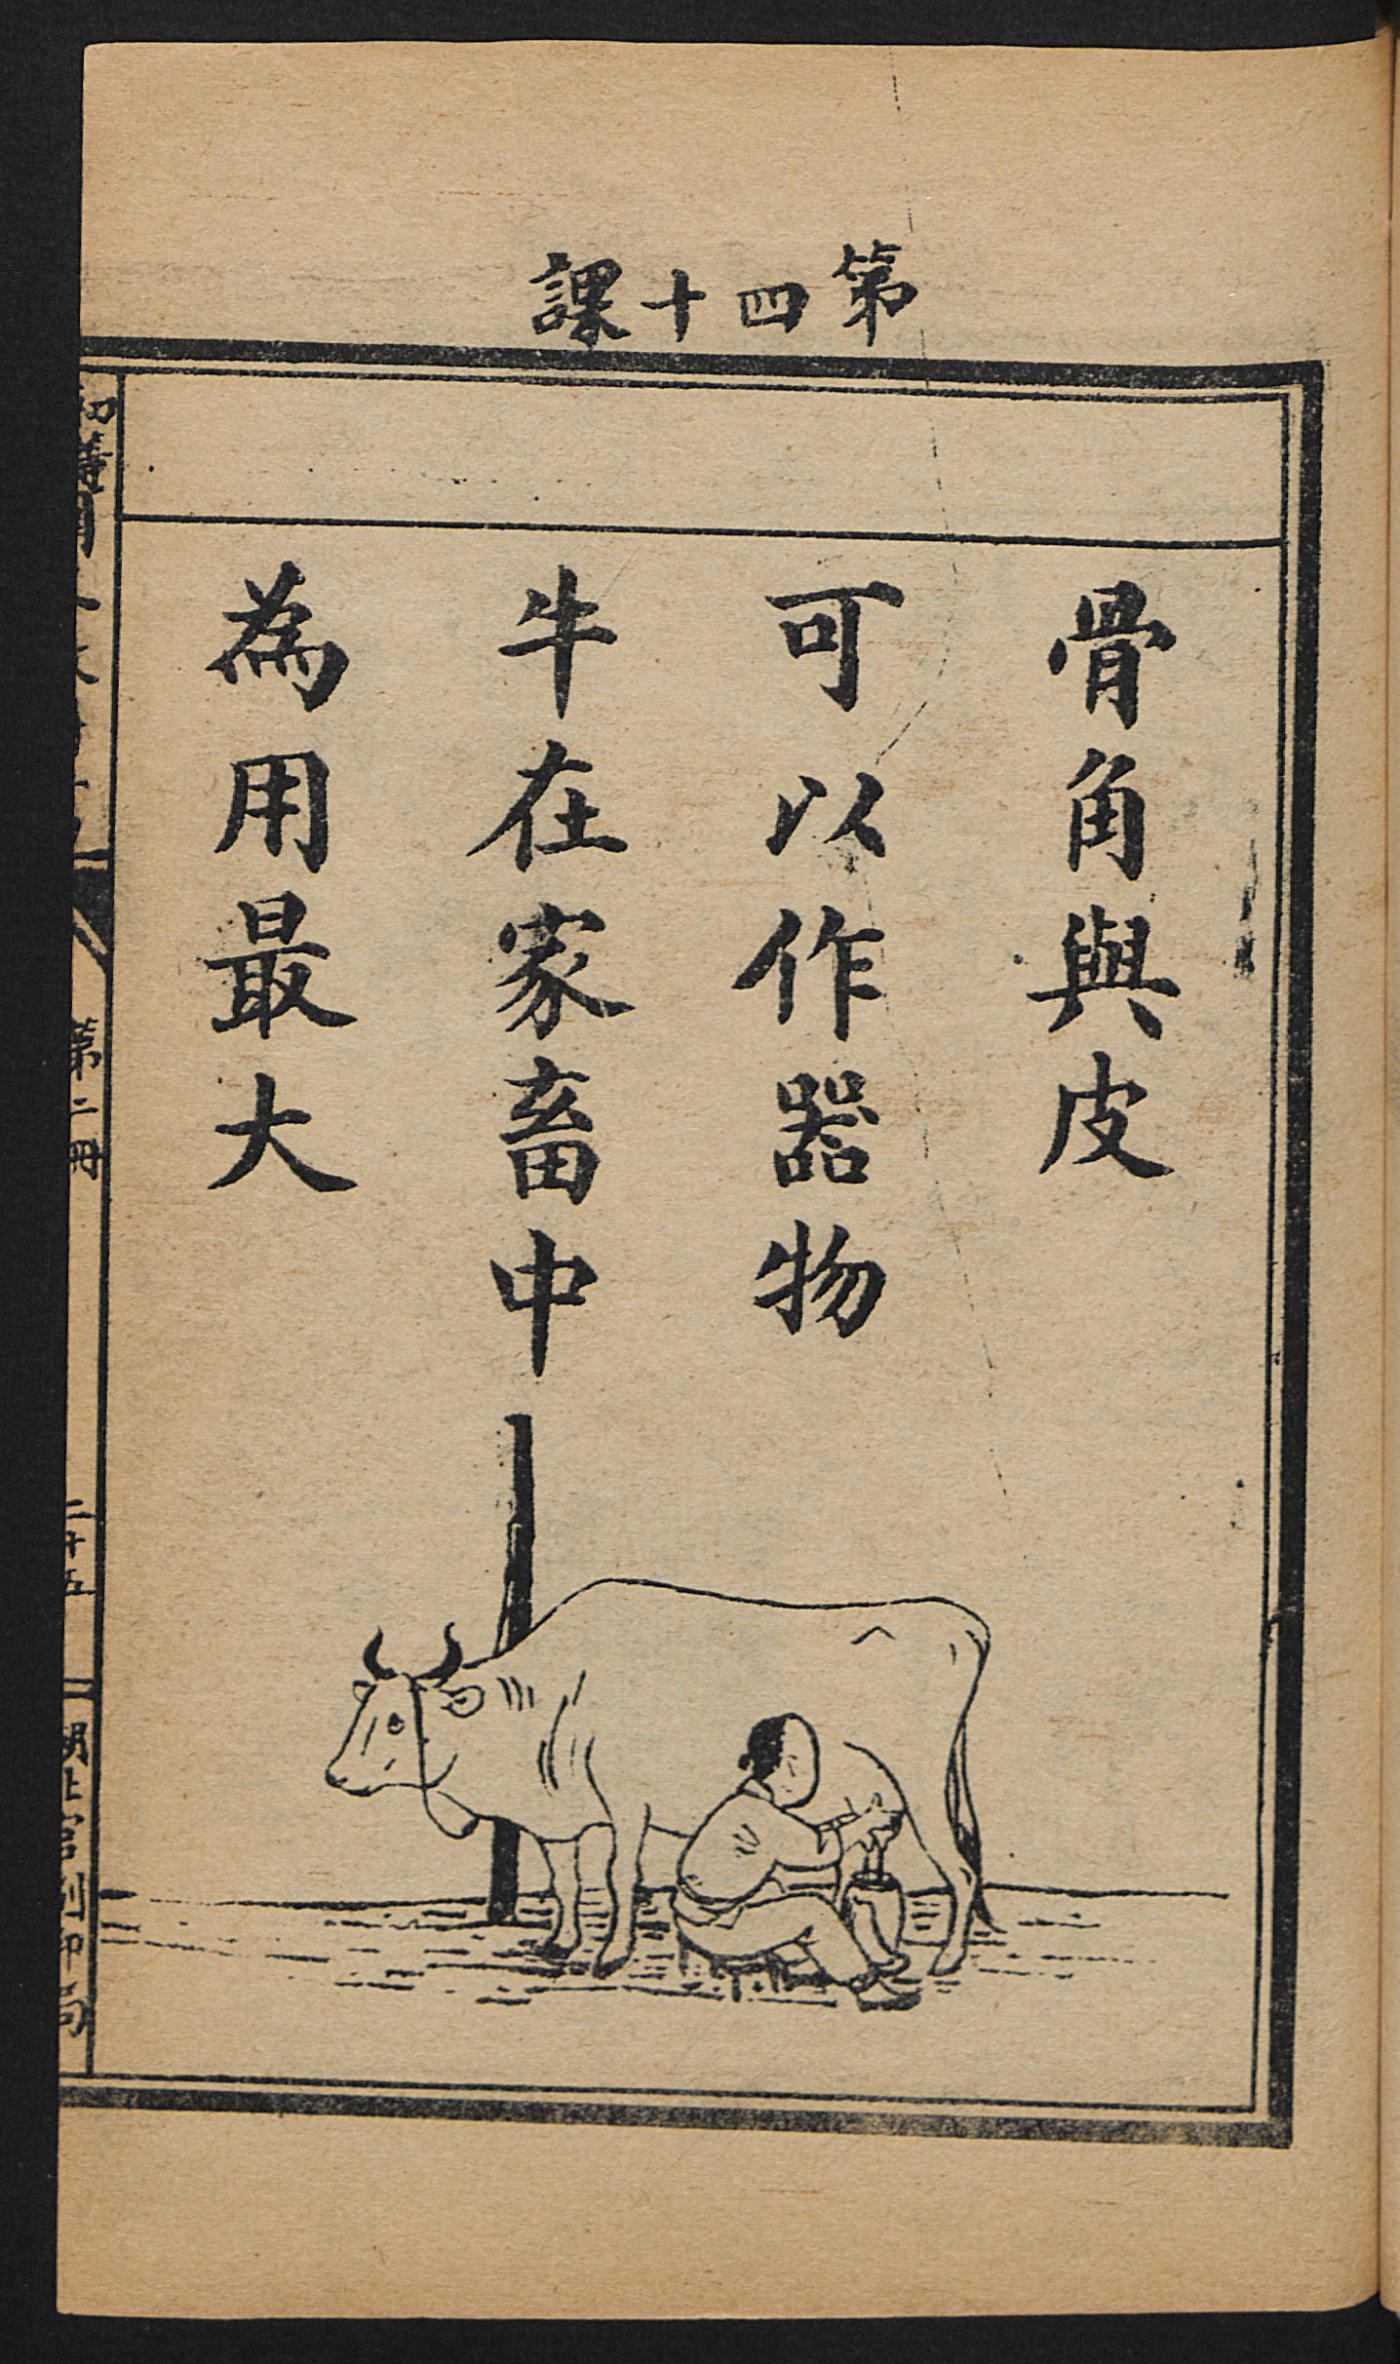 第四十課
骨角與皮
可以作器物
牛在家畜中
為用最大
第二冊
二十五